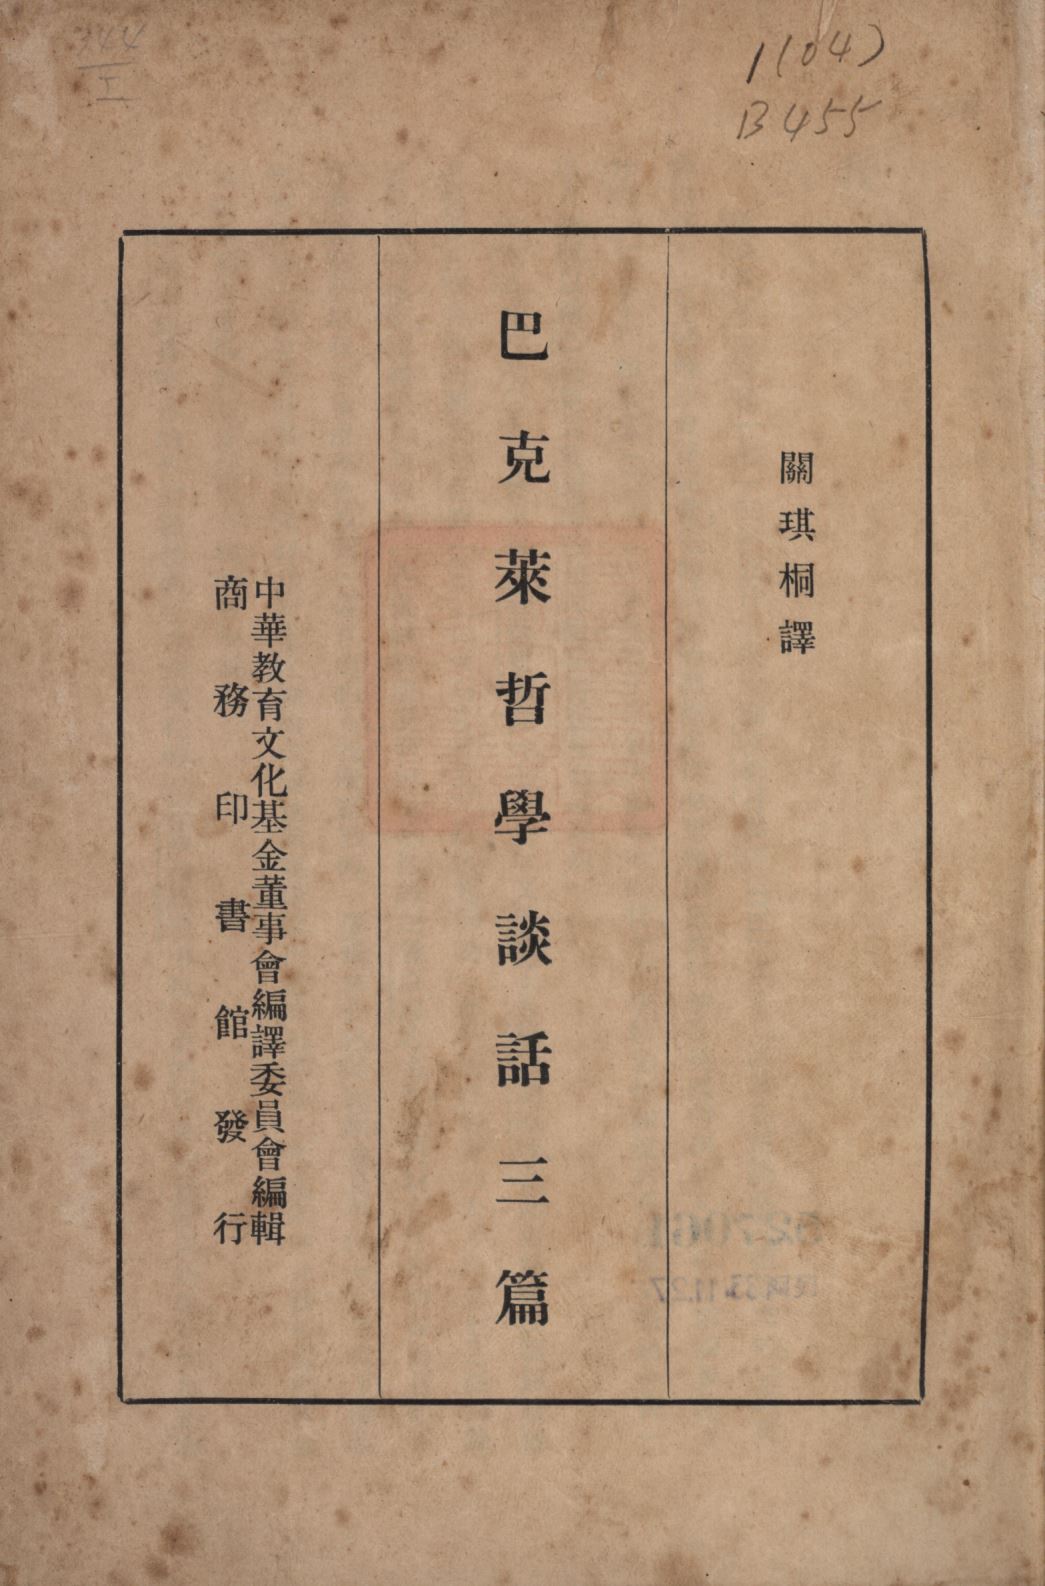 344
I
1(04)
B455
關琪桐譯
巴克萊哲學談話三篇
中華教育文化基金董事會編譯委員會編輯
商務印書館發行